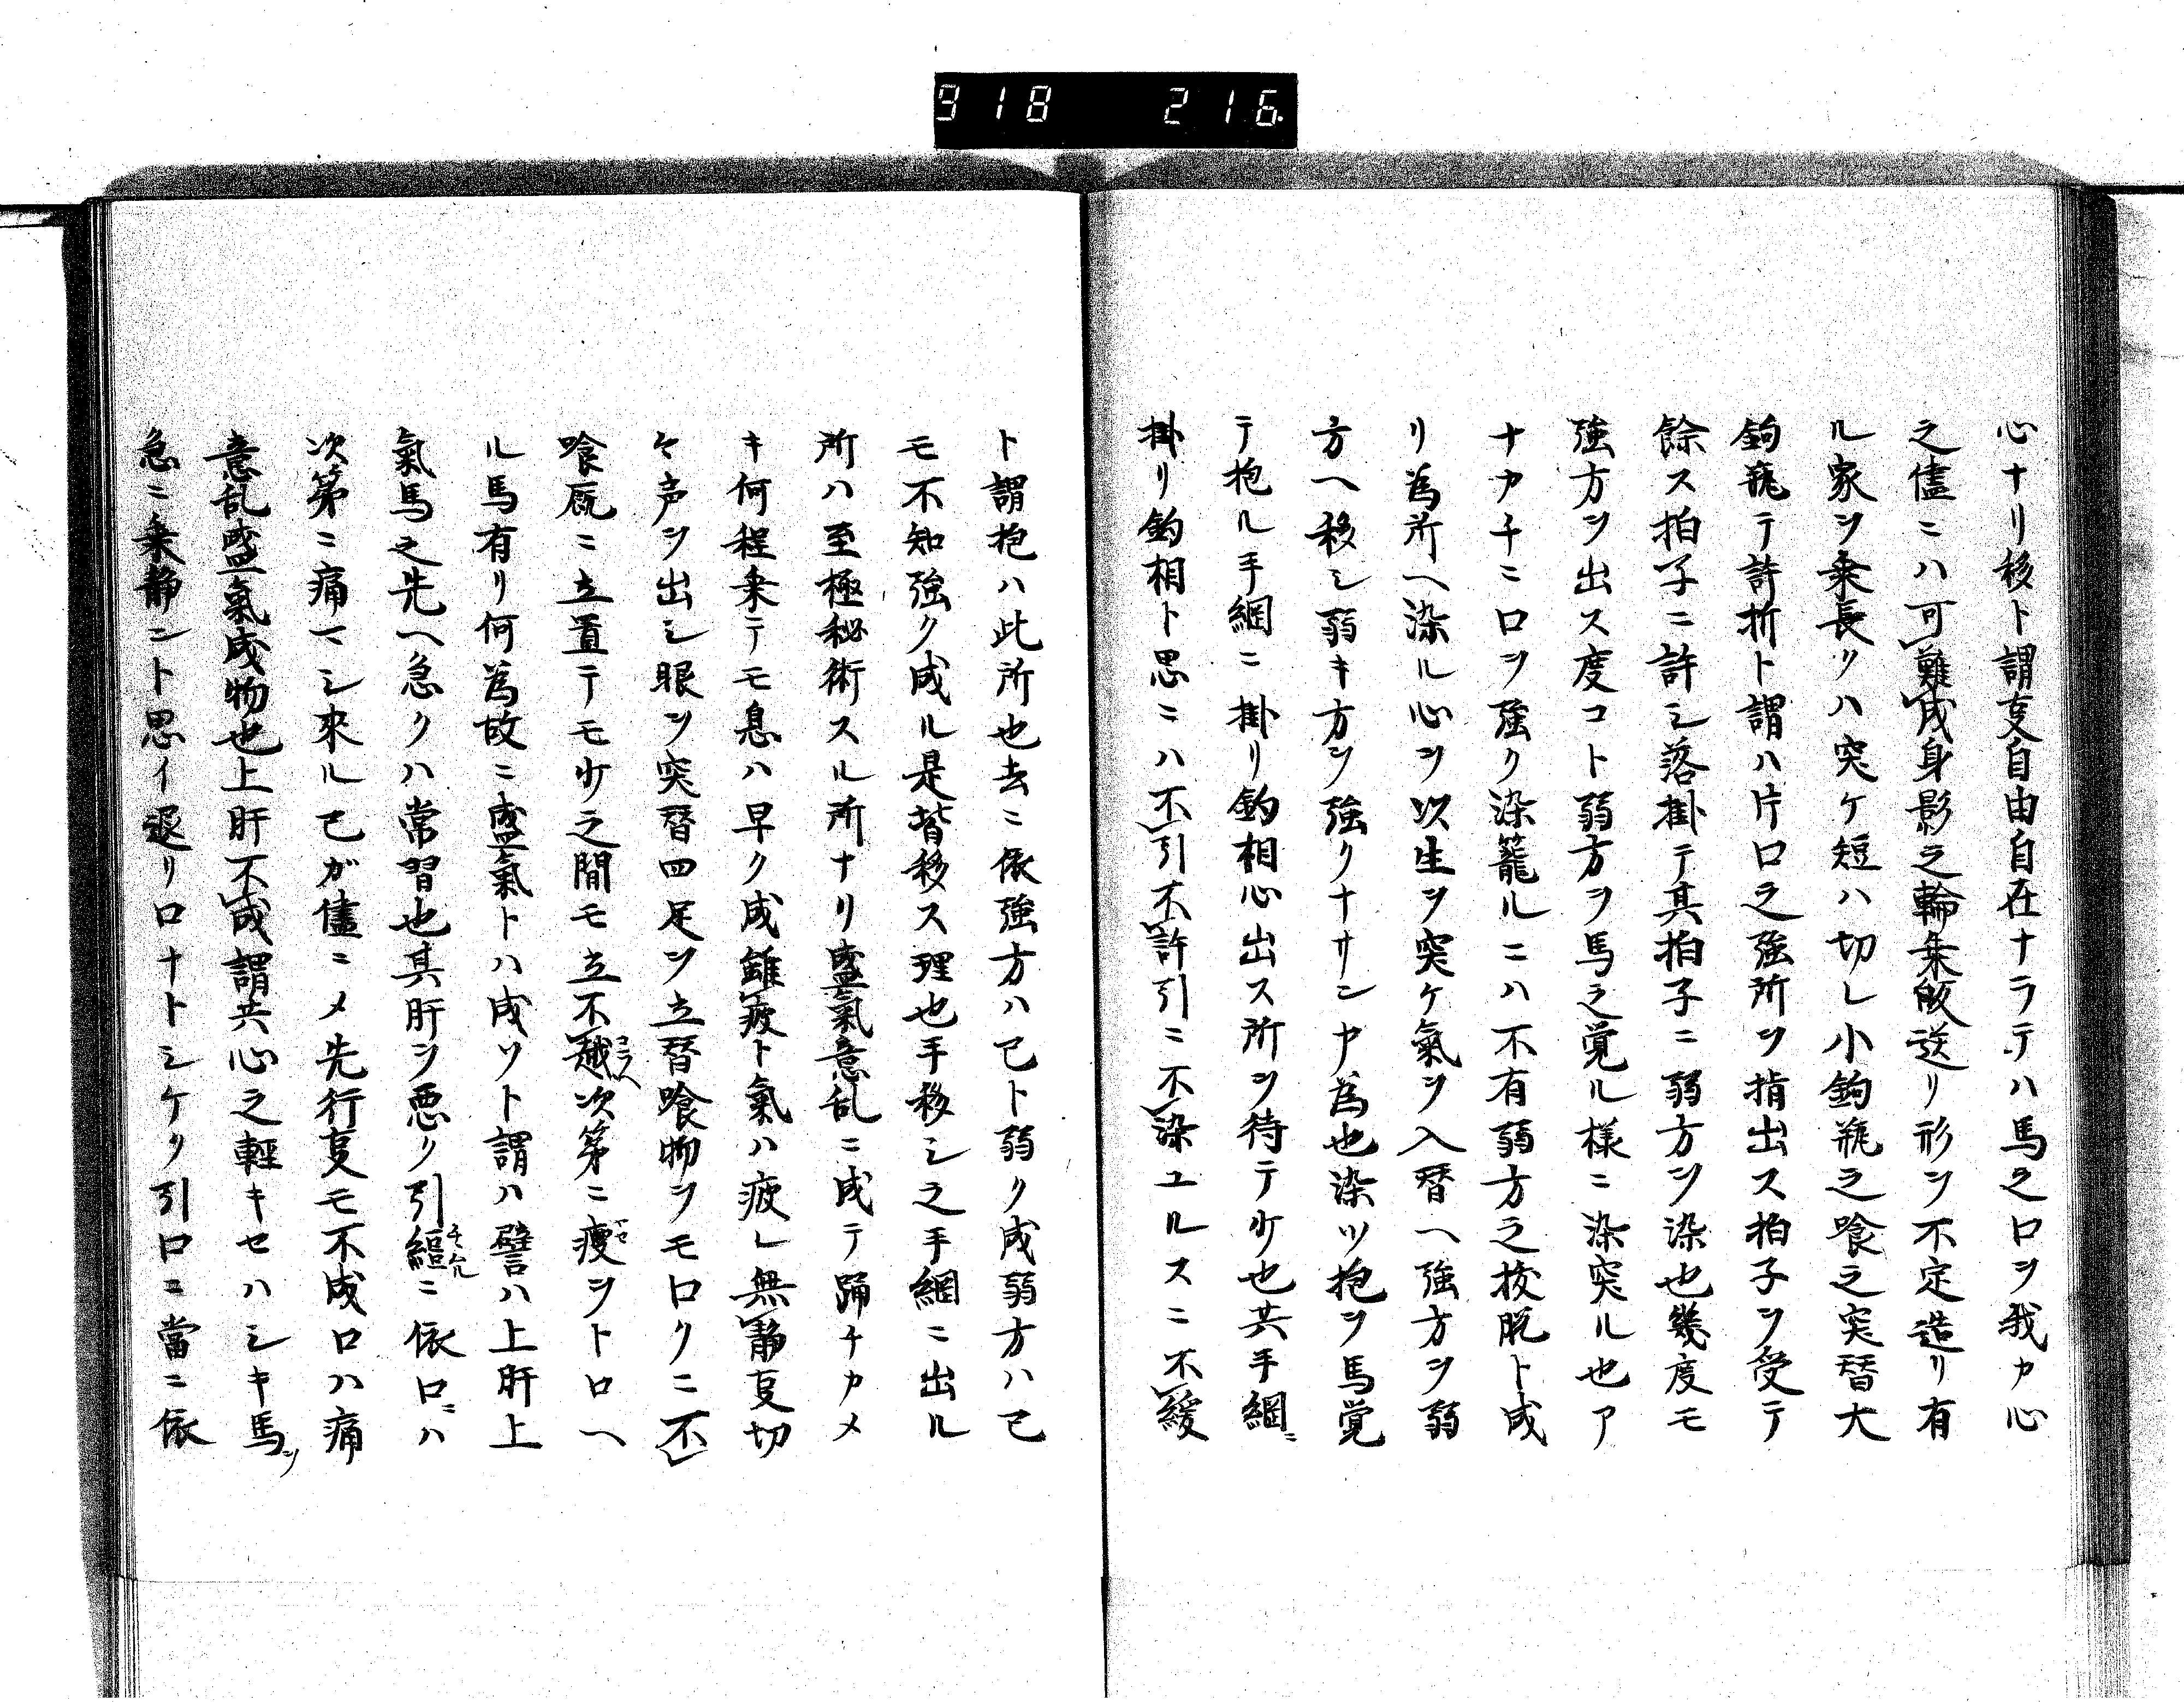 918 216
心ナリ移ト謂叓自由自在ナラテハ馬之口ヲ我カ心
之儘ニハ可難成身影之輪乗皈送リ形ヲ不定造リ有
ル家ヲ乗長クハ突ケ短ハ切レ小鉤瓶之喰之突替大
鉤瓶テ許折ト謂ハ片口之強所ヲ揹出ス拍子ヲ受テ
餘ス拍子ニ許シ落掛テ其拍子ニ弱方ヲ染也幾度モ
強方ヲ出ス度コト弱方ヲ馬之覚ル様ニ染突ル也ア
ナカチニ口ヲ強ク染籠ルニハ不有弱方之挍脱ト成
リ為所ヘ染ル心ヲ以生ヲ突ケ氣ヲ入替ヘ強方ヲ弱
方ヘ移シ弱キ方ヲ強クナサンカ為也染ツ抱ヲ馬覚
テ抱ル手綱ニ掛リ釣相心出ス所ヲ待テ少也共手綱ニ
掛リ釣相ト思ニハ不引不許引ニ不染ユルスニ不緩
ト謂抱ハ此所也去ニ依強方ハ已ト弱ク成弱方ハ已
モ不知強ク成ル是皆移ス理也手移シ之手綱ニ出ル
所ハ至極秘術スル所ナリ盛氣意乱ニ成テ踊チカメ
キ何程乗テモ息ハ早ク成雖疲ト氣ハ疲レ無静叓切
々声ヲ出シ眼ヲ突替四足ヲ立替喰物ヲモロクニ不
喰厩ニ立置テモ少之間モ立不越コラヘ次第ニ痩ヤセヲトロヘ
ル馬有リ何為故ニ盛氣トハ成ソト謂ハ譬ハ上肝上
氣馬之先ヘ急クハ常習也其肝ヲ悪ク引縕ニ依口ニハ
次第ニ痛マシ來ル已ガ儘ニメ先行叓モ不成口ハ痛
意乱盛氣成物也上肝不成謂共心之輕キセハシキ馬ヲ
急ニ乗静ントト思イ退リ口ナトシケク引口ニ當ニ依